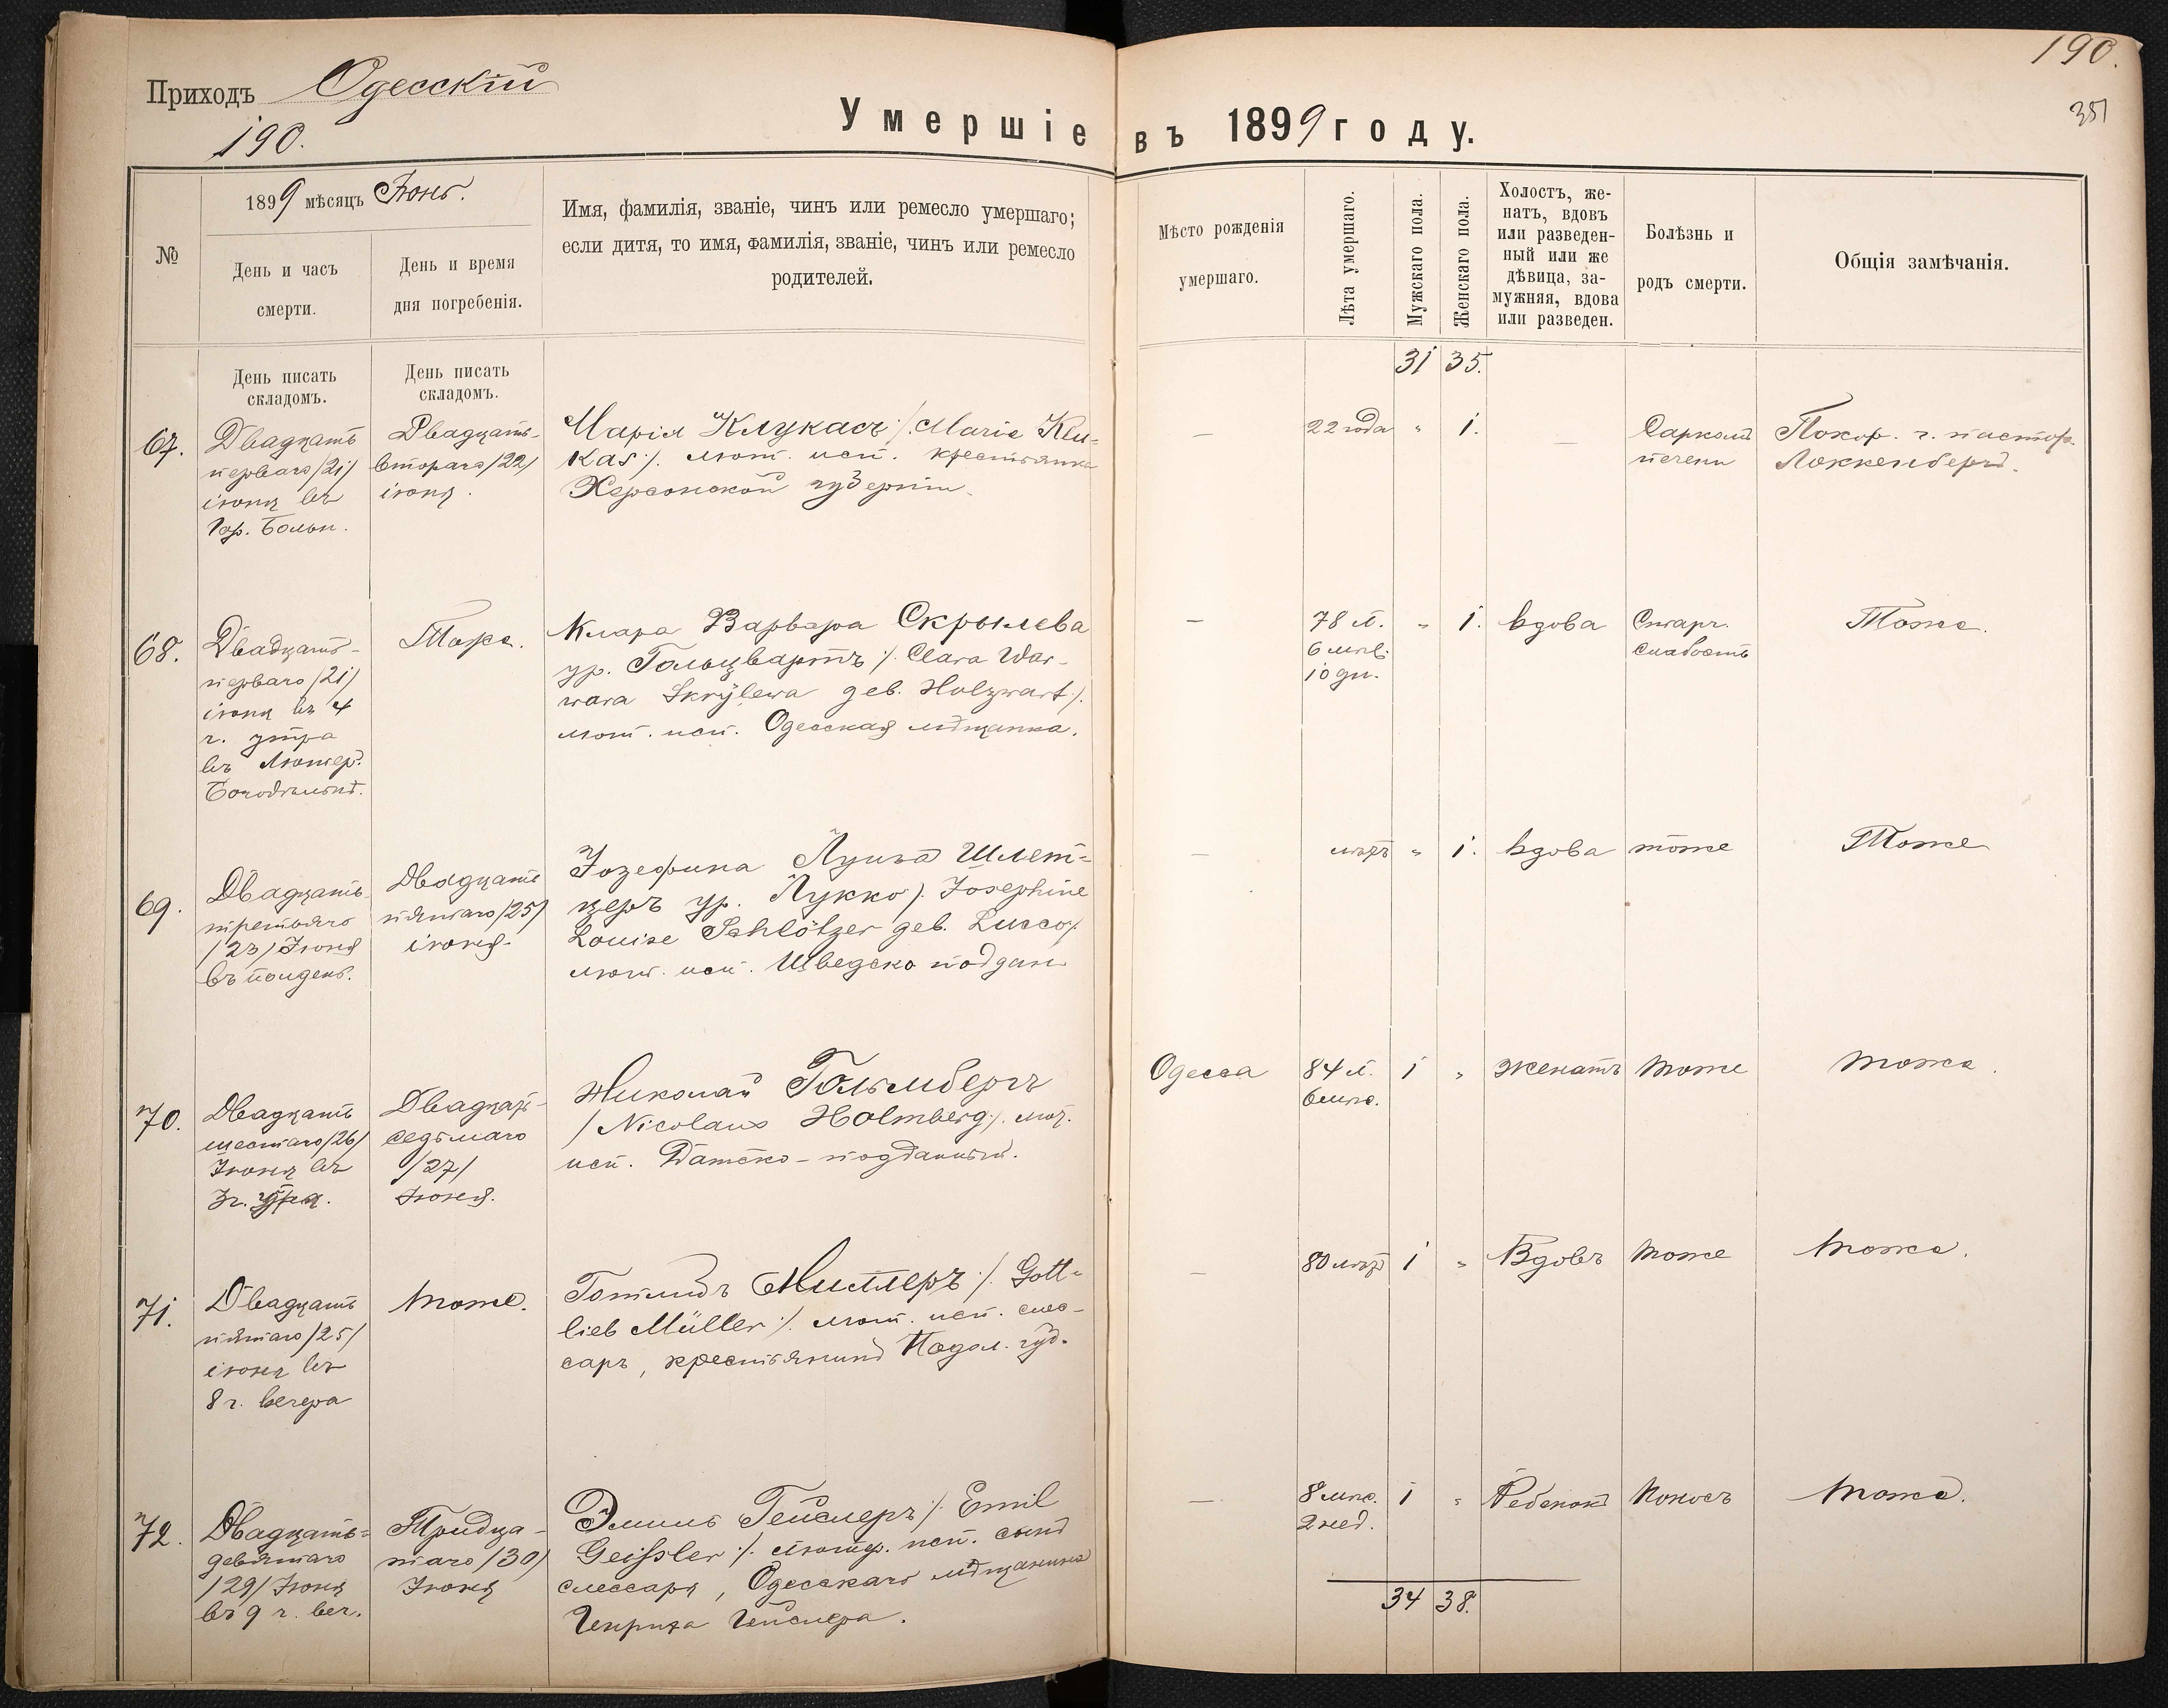 Приходъ Одесскій
190.
190.
351
Умершіе въ 1899 году.
№
1899 мѣсяцъ Іюнь.
День и часъ
смерти.
День и время
дня погребенія.
Имя, фамилія, званіе, чинъ или ремесло умершаго;
если дитя, то имя, фамилія, званіе, чинъ или ремесло
родителей.
Мѣсто рожденія
умершаго.
Лѣта умершаго.
Мужскаго пола.
Женскаго пола.
Холостъ, же-
натъ, вдовъ
или разведен-
ный или же
дѣвица, за-
мужняя, вдова
или разведен.
Болѣзнь и
родъ смерти.
Общія замѣчанія.
День писать
складомъ.
День писать
складомъ.
31 35.
67.
Двадцать
перваго /21/
іюня въ
Гор. Больн.
Двадцать-
втораго /22/
іюня.
Марія Клукасъ /. Marie Klu-
kas /. лют. исп. крестьянка
Херсонской губерніи.
—
22 года
"
1.
—
Саркома
печени
Похор. г. пастор.
Локкенбергъ.
68.
Двадцать-
перваго /21/
іюня въ 4
ч. утра
въ Лютер.
Богодѣльнѣ.
Тоже.
Клара Варвара Скрылева
ур. Гольцвартъ /. Clara War-
wara Skrÿlewa geb. Holzwart /.
лют. исп. Одесская мѣщанка.
—
78 л.
6 мѣс.
10 дн.
"
1.
вдова
Старч.
слабость
Тоже.
69.
Двадцать
третьяго
/23/ Іюня
въ полдень.
Двадцать
пятаго /25/
іюня.
Іозефина Луиза Шлет-
церъ ур. Лукко /. Josephine
Louise Schlötzer geb. Lucco /.
лют. исп. Шведско поддан
—
"
1.
вдова
тоже
Тоже
70.
Двадцать
шестаго /26/
Іюня въ
3 ч. утра.
Двадцать-
седьмаго
/27/
Іюня.
Николай Гольмбергъ
/ Nicolaus Holmberg /. лют.
исп. Датско-подданный.
Одесса
84 л.
6 мѣс.
1
"
Женатъ
тоже
тоже.
71.
Двадцать
пятаго /25/
іюня въ
8 ч. вечера
тоже.
Готлибъ Миллеръ /. Gott-
lieb Müller /. лют. исп. слес-
сарь, крестьянинъ Подол. губ.
—
80 лѣтъ
1
"
Вдовъ
тоже
тоже.
72.
Двадцать-
девятаго
/29/ Іюня
въ 9 ч. веч.
Тридца-
таго /30/
Іюня
Эмиль Гейслеръ /. Emil
Geißler /. лютер. исп. сынъ
слессаря, Одесскаго мѣщанина
Генриха Гейслера.
—
8 мѣс.
2 нед.
1
"
Ребенокъ
Поносъ
тоже.
34 38.